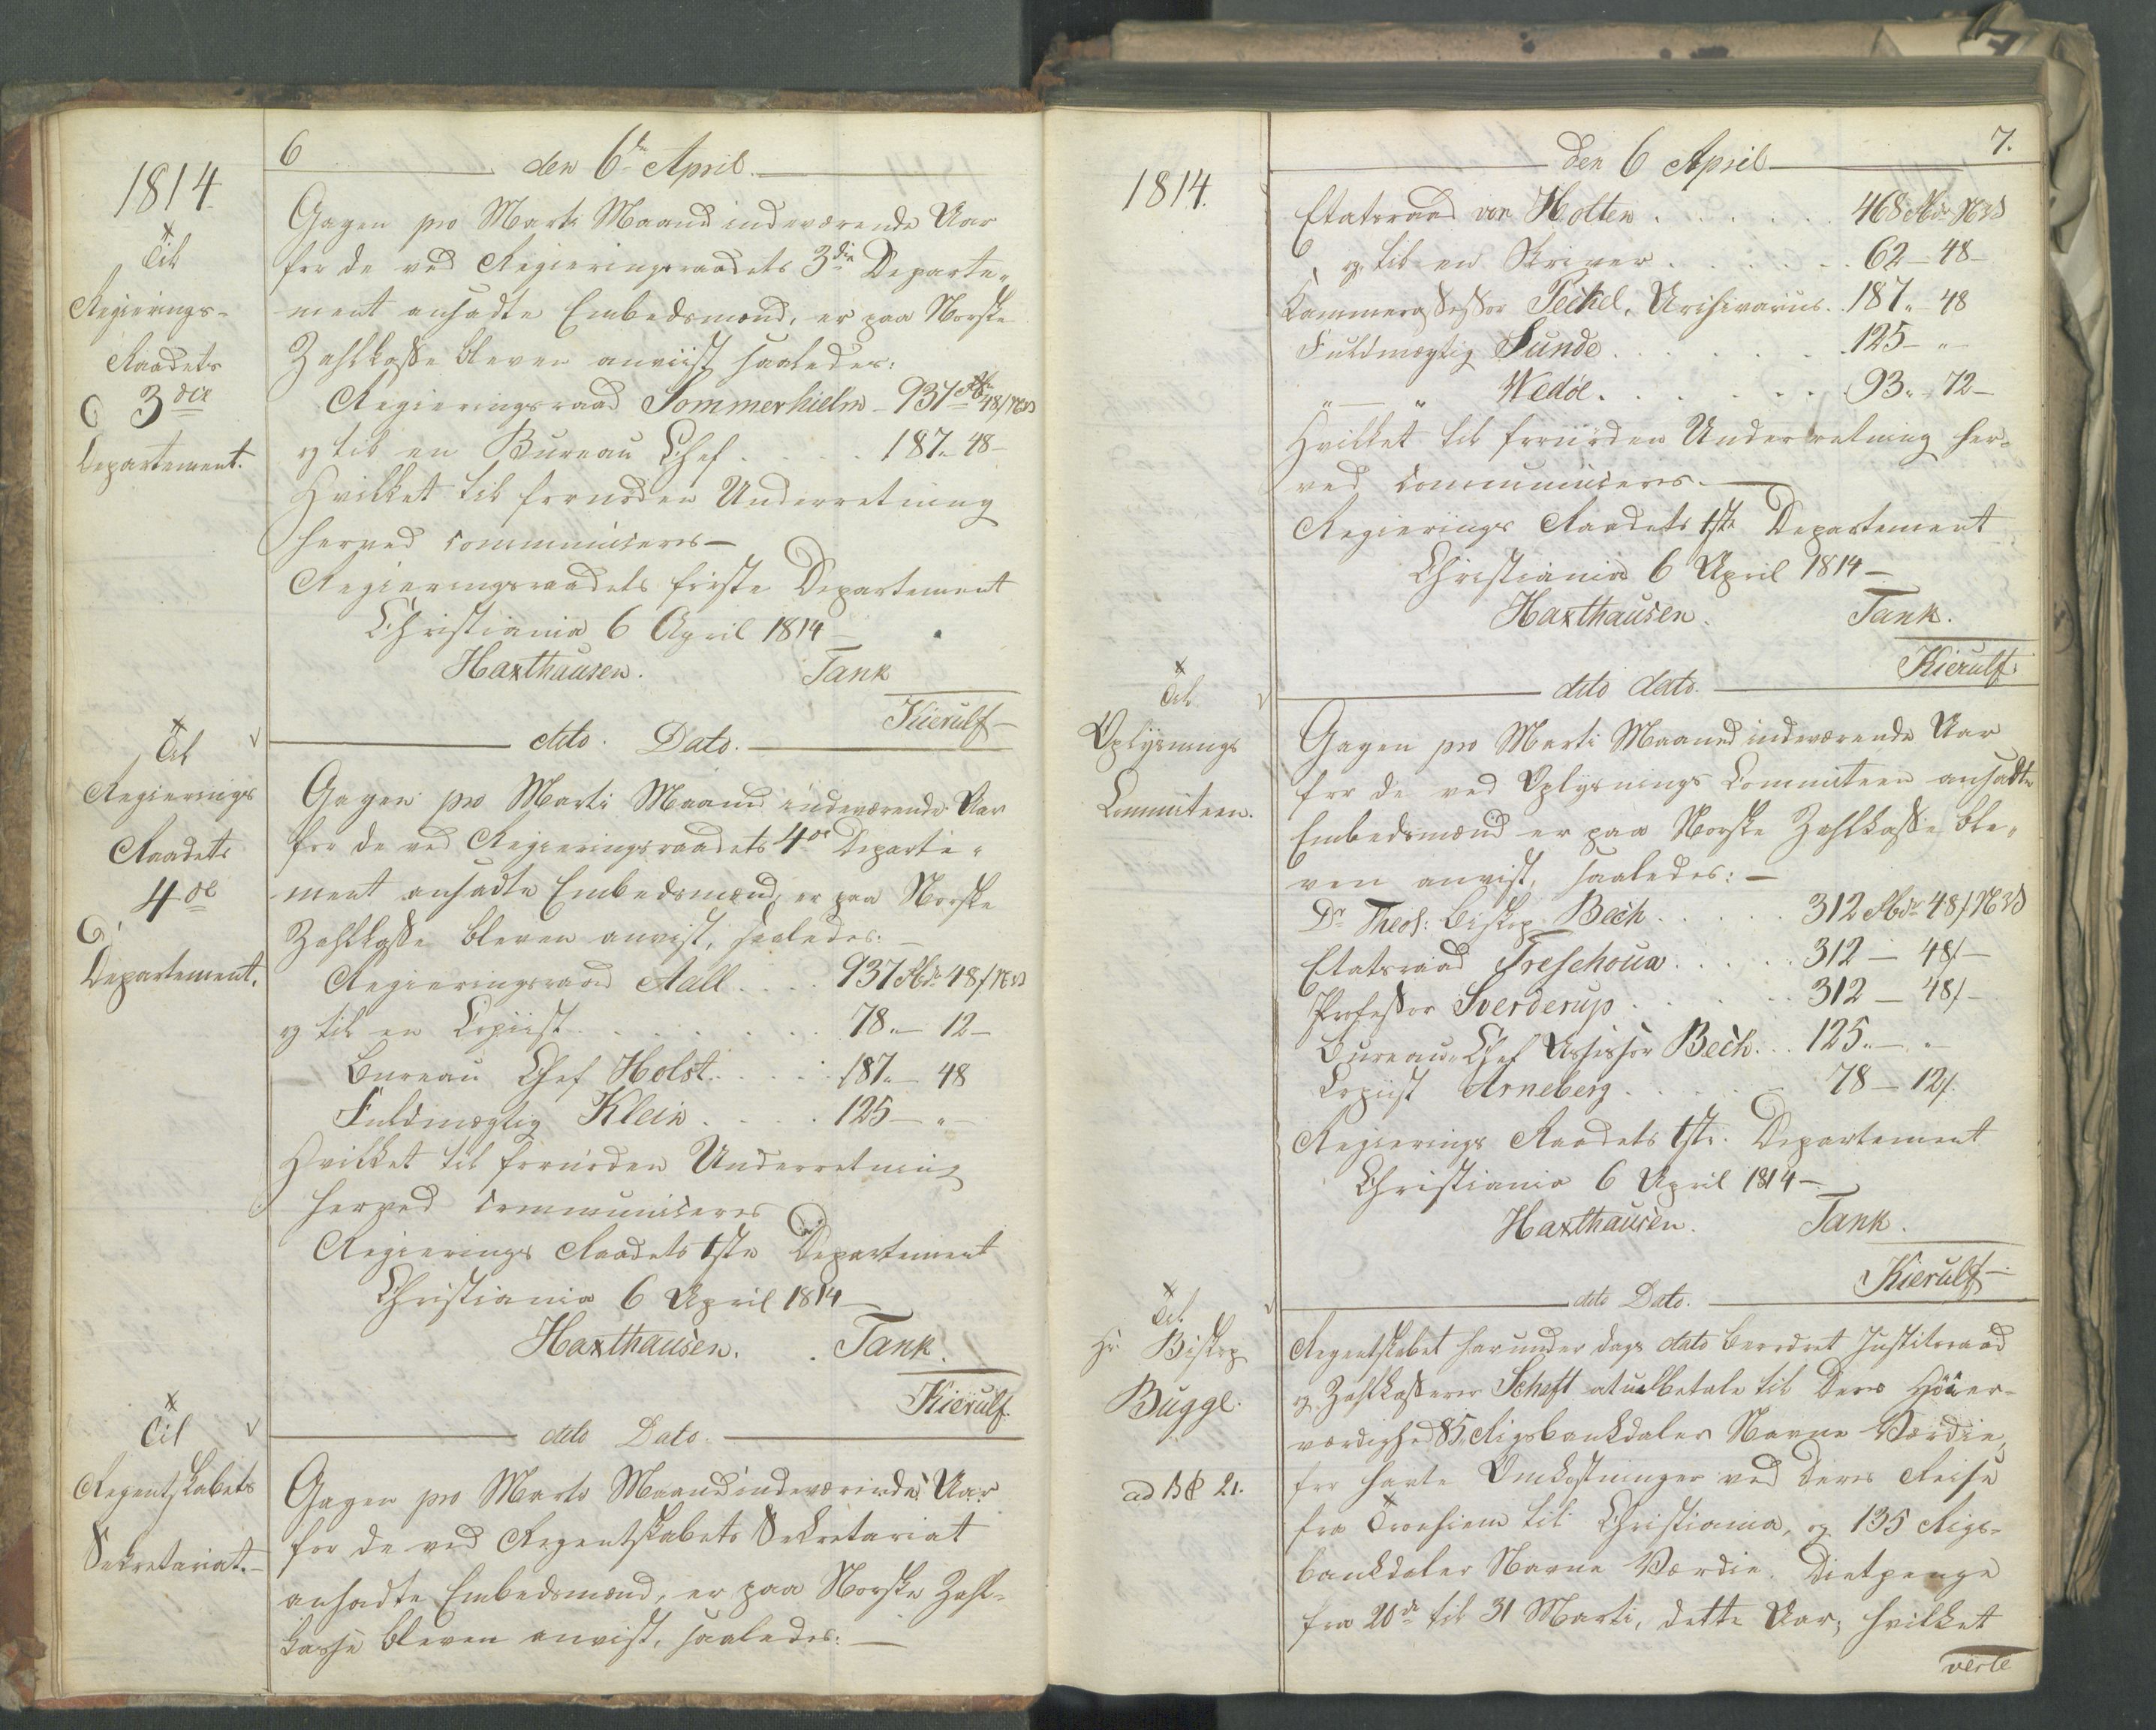 6
den 6te April.
1814.
Til
Regierings-
Raadets
3die
Departement.
Gagen pro Marti Maaned indeværende Aar
for de ved Regieringsraadets 3die Departe-
ment ansadte Embedsmænd, er paa Norske
Zahlkasse bleven anviist saaledes:
Regieringsraad Sommerhielm - 937 Rbdr 48/ NVd
og til en Bureau Chef . . . . 187 - 48 -
Hvilket til fornøden Underretning
herved communiceres -
Regieringsraadets første Departement
Christiania 6 April 1814 -
Haxthausen. Tank
Kierulf -
dito Dato.
Til
Regierings
Raadets
4de
Departement.
Gagen pro Marti Maaned indeværende Aar
for de ved Regieringsraadets 4de Departe-
ment ansadte Embedsmænd, er paa Norske
Zahlkasse bleven anvist, saaledes: -
Regieringsraad Aall . . . . 937 Rbdr 48/ NVd
og til en Copiist . . . . . . 78 - 12 -
Bureau Chef Holst . . . . . 187 - 48
Fuldmægtig Klein . . . . 125 - " -
Hvilket til fornøden Underretning
herved communiceres
Regierings Raadets 1ste Departement
Christiania 6 April 1814 -
Haxthausen. Tank.
Kierulf.
dito Dato
Til
Regentskabets
Sekretariat. -
Gagen pro Marts Maaned indeværende Aar
for de ved Regentskabets Sekretariat
ansadte Embedsmænd, er paa Norske Zahl-
kasse bleven anvist, saaledes: -
7.
den 6 April
1814.
Etatsraad von Holten . . . . . . 468 Rbdr NVd
og til en Skriver . . . . . . 62 - 48 -
Cammerassessor Pechel, Archivarius . 187 - 48
Fuldmægtig Sunde . . . . . . 125 - " -
" - " Wedøe . . . . . . 93 - 72 -
Hvilket til fornøden Underretning her-
ved communiceres. -
Regierings Raadets 1ste Departement
Christiania 6 April 1814 -
Haxthausen. Tank.
Kierulf.
dito dato.
Til
Oplysnings
Committeen.
Gagen pro Marti Maaned indeværende Aar
for de ved Oplysnings Committeen ansadte
Embedsmænd er paa Norske Zahlkasse ble-
ven anvist, saaledes: -
Dr Theol: Biskop Bech . . . . . 312 Rbdr 48/ NVd
Etatsraad Treschow . . . . . 312 - 48/ -
Professor Sverderup . . . . . 312 - 48/ -
Bureau-Chef Assessor Bech . . 125 - " -
Copiist Arneberg . . . . . . 78 - 12/.
Regierings Raadets 1ste Departement
Christiania 6 April 1814 -
Haxthausen. Tank.
Kierulf -
dito Dato.
Til
Hr Biskop
Bugge.
ad 21.
Regentskabet har under Dags dato beordret Justitsraad
og Zahlkasserer Scheft at udbetale til Deres Høiær-
værdighed 85 Rigsbankdaler Navne Værdie,
for havte Omkostninger ved Deres Reise
fra Tronhiem til Christiania, og 135 Rigs-
bankdaler Navne Værdie Dietpenge
fra 20de til 31 Marti, dette Aar, hvilket
verte